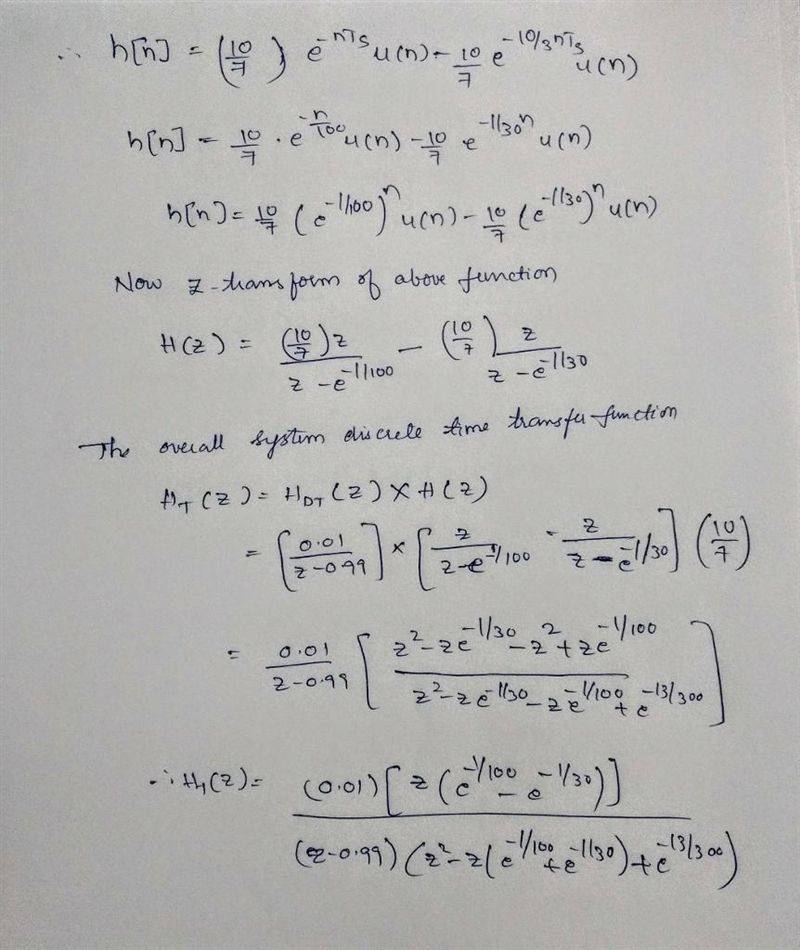 ∴ h[n] = (10/7) e^{-nTs} u(n) - 10/7 e^{-10/3 nTs} u(n)
h[n] = 10/7 · e^{-n/100} u(n) - 10/7 e^{-1/30 n} u(n)
h[n] = 10/7 (e^{-1/100})^n u(n) - 10/7 (e^{-1/30})^n u(n)
Now z-transform of above function
H(z) = (10/7)z / (z - e^{-1/100}) - (10/7) z / (z - e^{-1/30})
The overall system discrete time transfer function
H_T(z) = H_DT(z) × H(z)
= [0.01 / (z-0.99)] × [z / (z-e^{-1/100}) - z / (z-e^{-1/30})] (10/7)
= 0.01 / (z-0.99) [(z²-ze^{-1/30}-z²+ze^{-1/100}) / (z²-ze^{-1/30}-ze^{-1/100}+e^{-13/300})]
∴ H_1(z) = (0.01)[z(e^{-1/100} - e^{-1/30})] / (z-0.99)(z²-z(e^{-1/100}+e^{-1/30})+e^{-13/300})